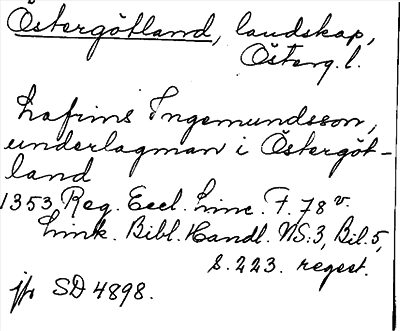 Östergötland, landskap,
Österg.l.
Lafrins Ingemundsson,
underlagman i Östergöt-
land
1353 Reg. Eccl. Linc. F. 78 v.
Link. Bibl. Handl. NS:3, Bil. 5,
S. 223. regest.
jfr SD 4898.